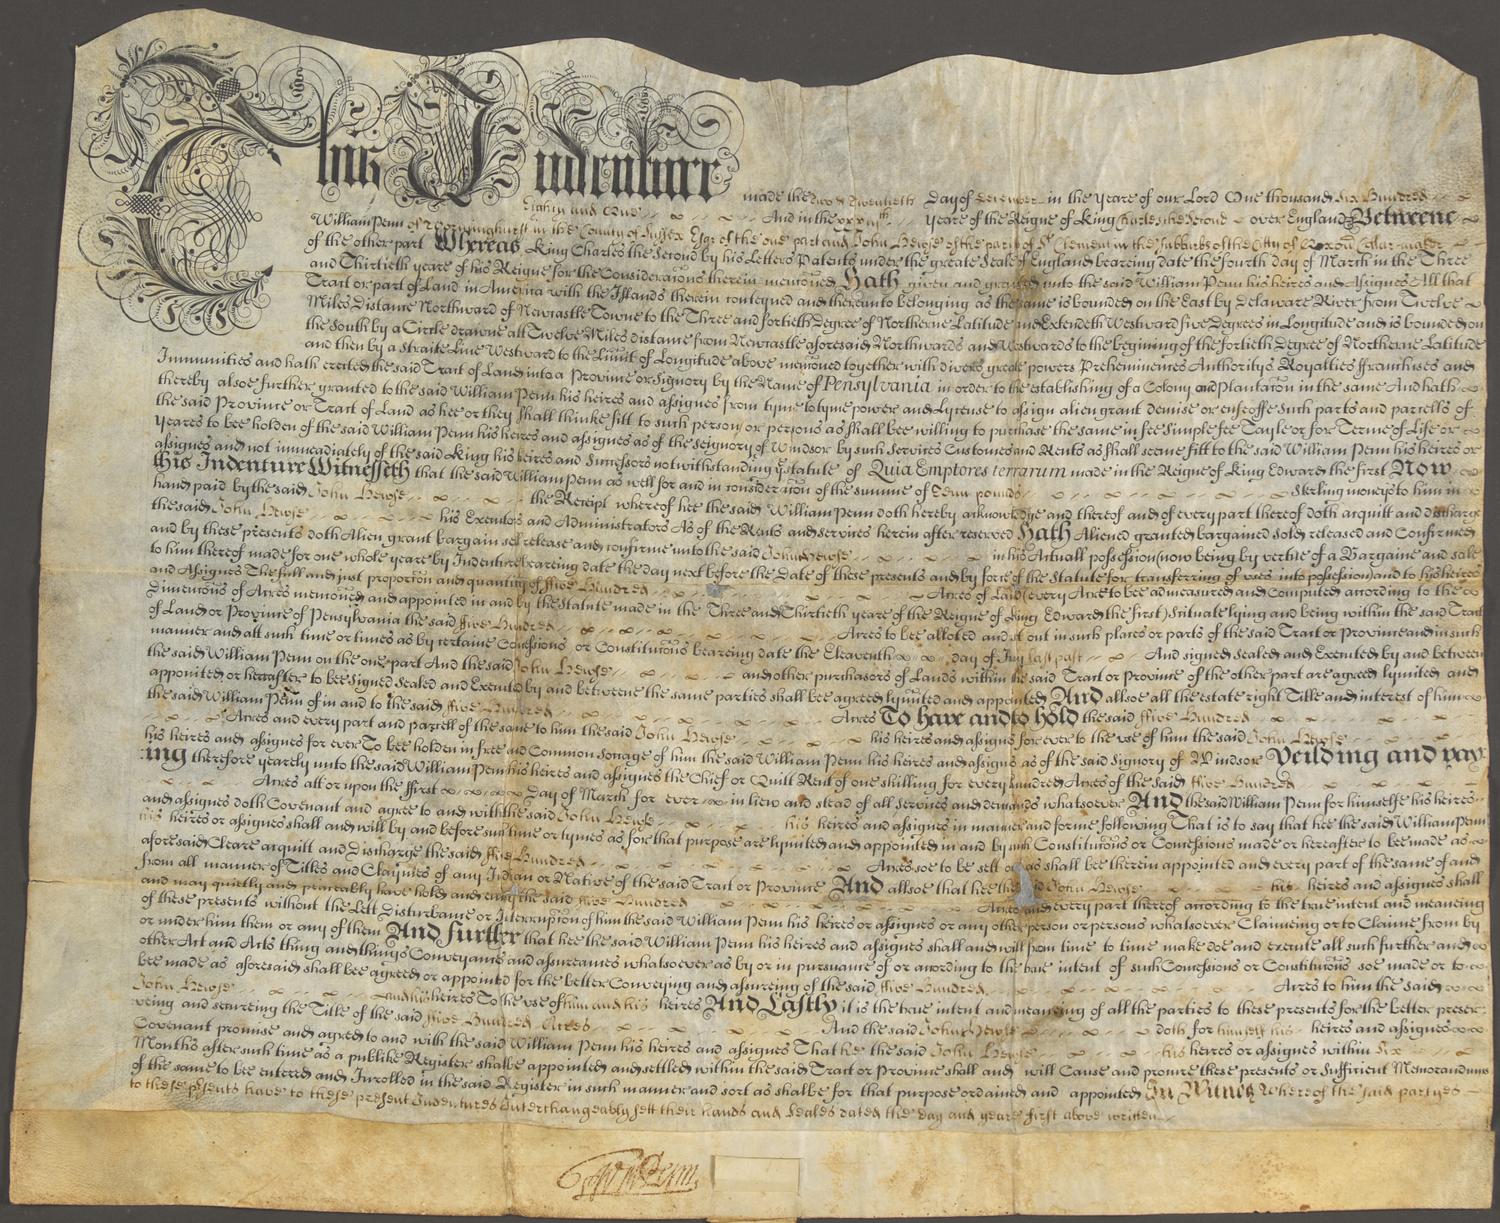 This Indenture made the Two & Twentieth Day of December in the Yeare of our Lord One thousand Six Hundred
Eighty and One And in the xxxiijth yeare of the Reigne of King Charles the Second over England Betweene
William Penn of Worminghurst in the County of Sussex Esqr of the one part and John Hewse of the parish of St Clement in the Subburbs of the Citty of
of the other part Whereas King Charles the Second by his Letters Patents under the greate Seale of England beareing date the fourth day of March in the Three
and Thirtieth yeare of his Reigne for the Consideracons therein menconed Hath given and granted unto the said William Penn his heires and Assignes All that
Tract or part of Land in America with the Islands therein conteyned and thereunto belonging as the same is bounded on the East by Delaware River from Twelve
Miles Distance Northward of Newcastle Towne to the Three and fortieth Degree of Northerne Latitude and Extendeth Westward five Degrees in Longitude and is bounded on
the South by a Circle drawne att Twelve Miles distance from Newcastle aforesaid Northwards and Westwards to the begining of the fortieth Degree of Northerne Latitude
and then by a straite Line Westward to the Limitt of Longitude above menconed together with divers greate powers Preheminences Authoritys Royalties ffranchises and
Immunities and hath erected the said Tract of Land into a Province or Signory by the Name of Pensylvania in order to the establishing of a Colony and Plantacon in the same And hath
thereby alsoe further granted to the said William Penn his heires and assignes from tyme to tyme power and Lycense to assign alien grant demise or enfeoffe Such parts and parcells of
the said Province or Tract of Land as hee or they shall thinke fitt to such person or persons as shall bee willing to purchase the same in fee Simple fee Tayle or for Terme of Life or
Yeares to bee holden of the said William Penn his heires and assignes as of the Seignory of Windsor by such Services Customes and Rents as shall seeme fitt to the said William Penn his heires or
assignes and not immediately of the said King his heires and Successors notwithstanding ye statute of Quia Emptores terrarum made in the Reigne of King Edward the first Now
this Indenture Witnesseth that the said William Penn as well for and in consideracon of the summe of Tenn pounds Sterling moneys to him in
hand paid by the said John Hewse the Receipt whereof hee the said William Penn doth hereby acknowledge and thereof and of every part thereof doth acquitt and discharge
the said John Hewse his Executors and Administrators As of the Rents and services herein after reserved Hath Aliened granted bargained sold released and Confirmed
and by these presents doth Alien grant bargain sell release and confirme unto the said John Hewse in his Actuall possession now being by vertue of a Bargaine and sale
to him thereof made for one whole yeare by Indenture beareing date the day next before the Date of these presents and by force of the Statute for transferring of uses into possession and to his heires
and Assignes The full and just proportion and quantity of ffive Hundred Acres of Land (every Acre to bee admeasured and Computed according to the
Dimencons of Acres menconed and appointed in and by the statute made in the Three and Thirtieth yeare of the Reigne of King Edward the first) Scituate lying and being within the said Tract
of Land or Province of Pensylvania the said ffive Hundred Acres to bee alloted and sett out in such places or parts of the said Tract or Province and in such
manner and att such time or times as by certaine Concessions or Constitucons beareing date the Eleaventh day of July last past And signed sealed and Executed by and between
the said William Penn on the one part And the said John Hewse and other purchasors of Lands within the said Tract or Province of the other part are agreed lymited and
appointed or hereafter to bee signed sealed and Executed by and betweene the same parties shall bee agreed lymitted and appointed And allsoe all the estate right Title and interest of him
the said William Penn of in and to the said ffive Hundred Acres To have and to hold the said ffive Hundred
Acres and every part and parcell of the same to him the said John Hewse his heires and assigns for ever to the use of him the said John Hewse
his heires and assignes for ever To bee holden in free and Common Soccage of him the said William Penn his heires and assigns as of the said Signory of Windsor Yeilding and pay
ing therefore yearely unto the said William Penn his heires and assignes the Chief or Quitt Rent of one shilling for every hundred Acres of the said ffive Hundred
Acres att or upon the ffirst Day of March for ever in liew and stead of all services and demands whatsoever And the said William Penn for himselfe his heires
and assignes doth Covenant and agree to and with the said John Hewse his heires and assignes in manner and forme following That is to say that hee the said William Penn
his heires or assignes shall and will by and before such time or tymes as for that purpose are lymited and appointed in and by such Constitucons or Concessions made or hereafter to bee made as
aforesaid Cleare acquitt and Discharge the said ffive Hundred Acres soe to be sett out as shall bee therein appointed and every part of the same of and
from all manner of Titles and Claymes of any Indian or Native of the said Tract or Province And allsoe that hee the said John Hewse his heires and assignes shall
and may quietly and peaceably have hold and enjoy the said ffive Hundred Acres and every part thereof according to the true intent and meaneing
of these presents without the Lett Disturbance or Interruption of him the said William Penn his heires or assignes or any other person or persons whatsoever Claimeing or to Claime from by
or under him them or any of them And further that hee the said William Penn his heires and assignes shall and will from time to time make doe and execute all such further and
other Act and Acts thing and things Conveyances and assurances whatsoever as by or in pursuance of or according to the true intent of such Concessions or Constitucons soe made or to
bee made as aforesaid shall bee agreed or appointed for the better Conveying and assureing of the said ffive Hundred Acres to him the said
John Hewse and his heires To the use of him and his heires And Lastly it is the true intent and meaneing of all the parties to these presents for the better preser-
veing and secureing the Title of the said ffive Hundred Acres And the said John Hewse doth for himself his heires and assignes
Covenant promise and agree to and with the said William Penn his heires and assignes That he the said John Hewse his heires or assignes within Six
Months after such time as a publike Register shalbe appointed and settled within the said Tract or Province shall and will Cause and procure these presents or Sufficient Memorandums
of the same to bee entered and Inrolled in the said Register in such manner and sort as shalbe for that purpose ordained and appointed In Witnes Whereof the said partyes
to these presents have to these present Indentures Interchangeably sett their hands and Seales dated the day and yeare first above written
Wm Penn